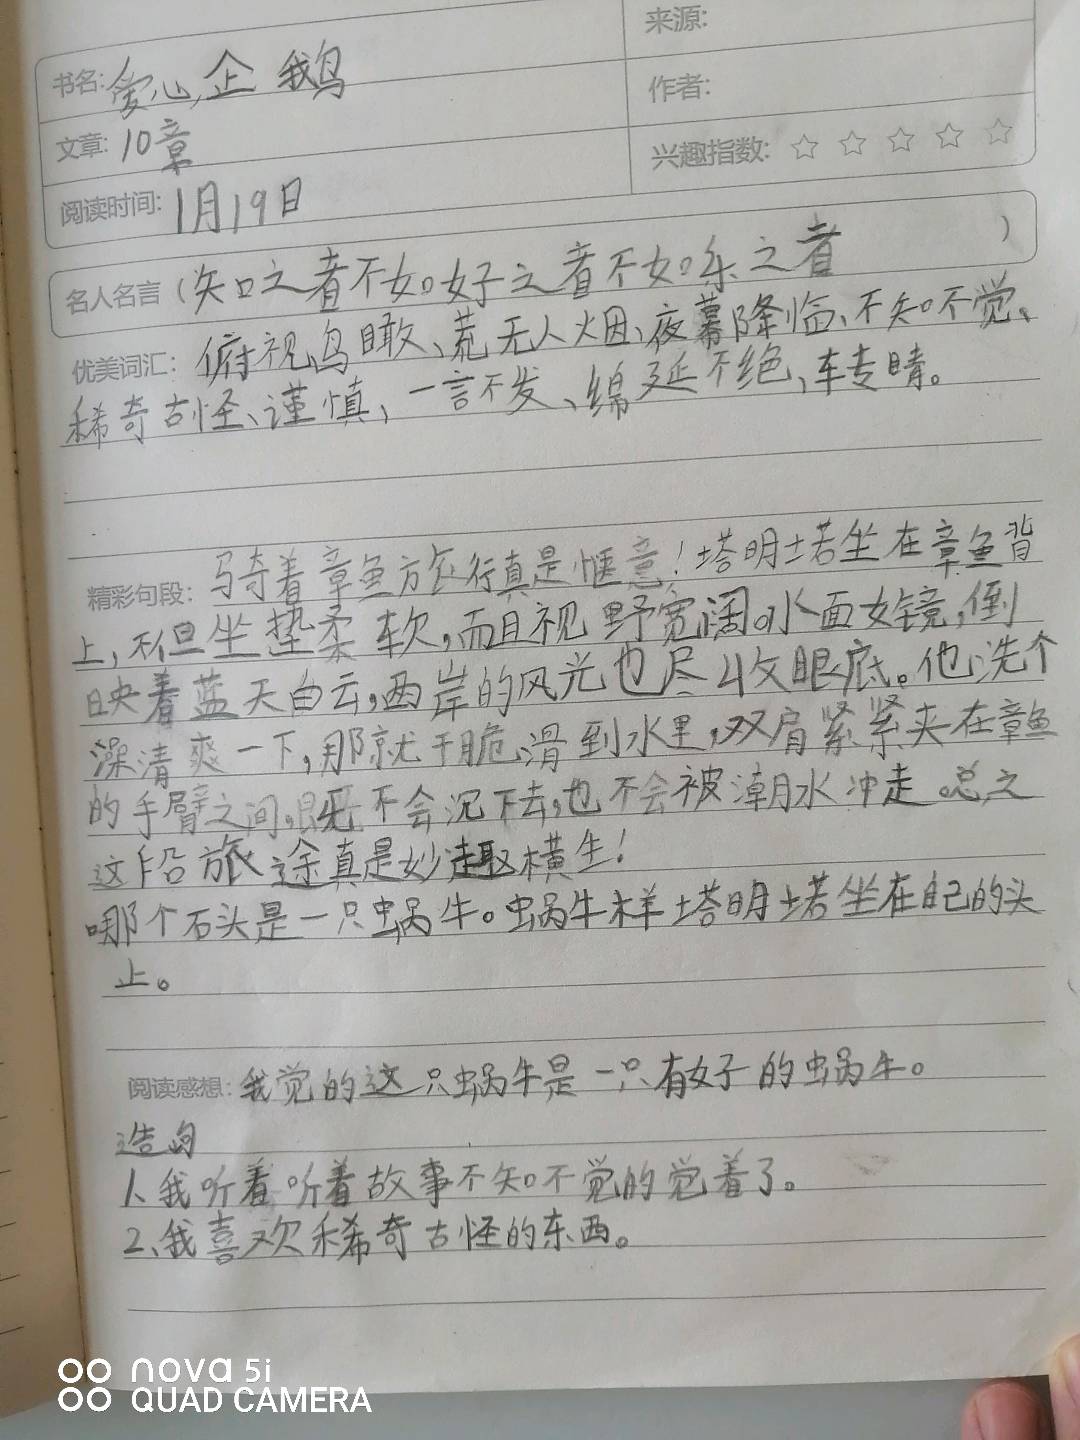 来源:
书名: 爱心企鹅
作者:
文章: 10章
兴趣指数: ☆ ☆ ☆ ☆ ☆
阅读时间: 1月19日
名人名言 (知之者不如好之者不如乐之者 )
优美词汇: 俯视鸟瞰、荒无人烟、夜幕降临、不知不觉、
稀奇古怪、谨慎、一言不发、绵延不绝、转睛。
精彩句段: 骑着章鱼旅行真是惬意!塔明塔若坐在章鱼背
上,不但坐垫柔软,而且视野宽阔。水面如镜,倒
映着蓝天白云,两岸的风光也尽收眼底。他洗个
澡清爽一下,那就干脆滑到水里,双肩紧紧夹在章鱼
的手臂之间,既不会沉下去,也不会被潮水冲走。总之
这段旅途真是妙趣横生!
哪个石头是一只蜗牛。蜗牛样塔明塔若坐在自己的头
上。
阅读感想: 我觉的这只蜗牛是一只有好的蜗牛。
造句
1、我听着听着故事不知不觉的觉着了。
2、我喜欢稀奇古怪的东西。
nova 5i
QUAD CAMERA